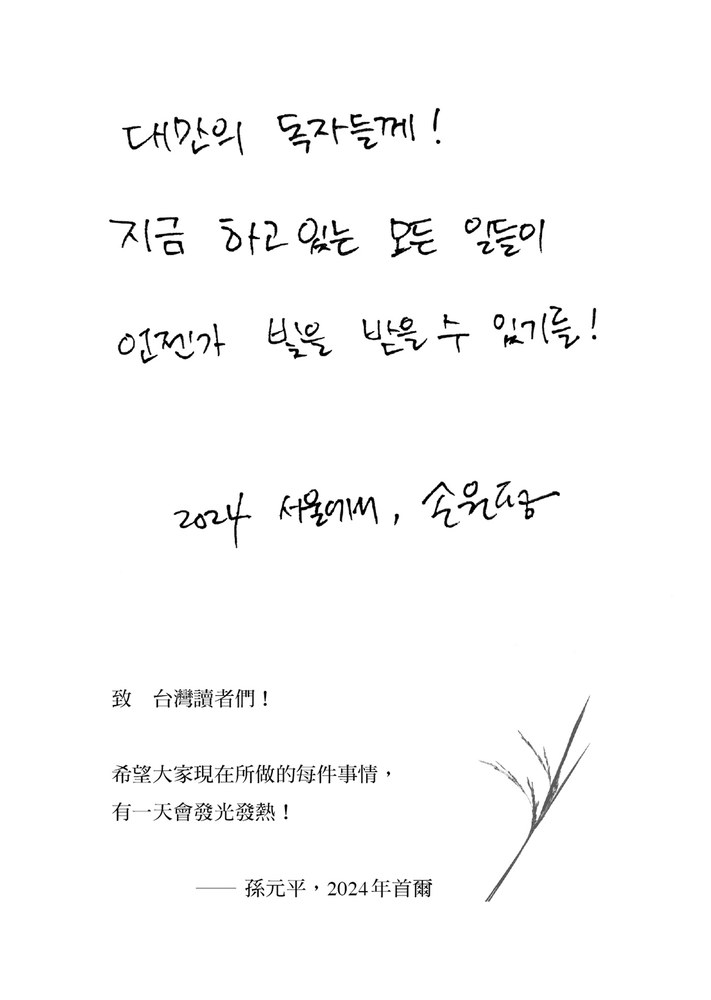 대만의 독자들께!
지금 하고 있는 모든 일들이
언젠가 빛을 받을 수 있기를!
2024 서울에서, 손원평
致　台灣讀者們！
希望大家現在所做的每件事情，
有一天會發光發熱！
—— 孫元平，2024年首爾